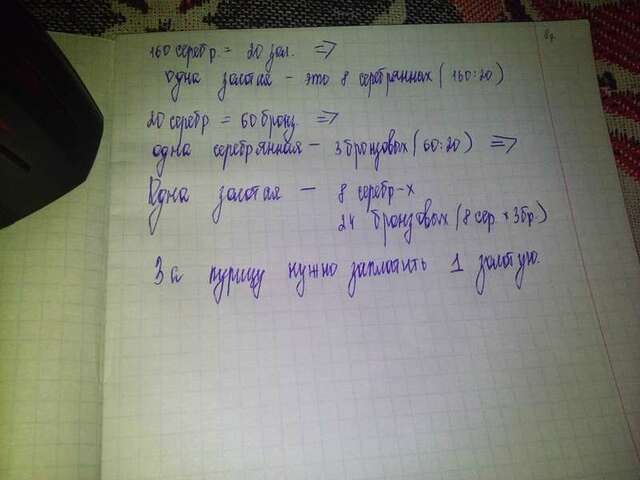 160 серебр. = 20 зол. =>
одна золотая - это 8 серебрянных (160:20)
20 серебр = 60 бронз =>
одна серебрянная - 3 бронзовых (60:20) =>
Одна золотая - 8 серебр-х
24 бронзовых (8 сер. x 3 бр.)
За курицу нужно заплатить 1 золотую.